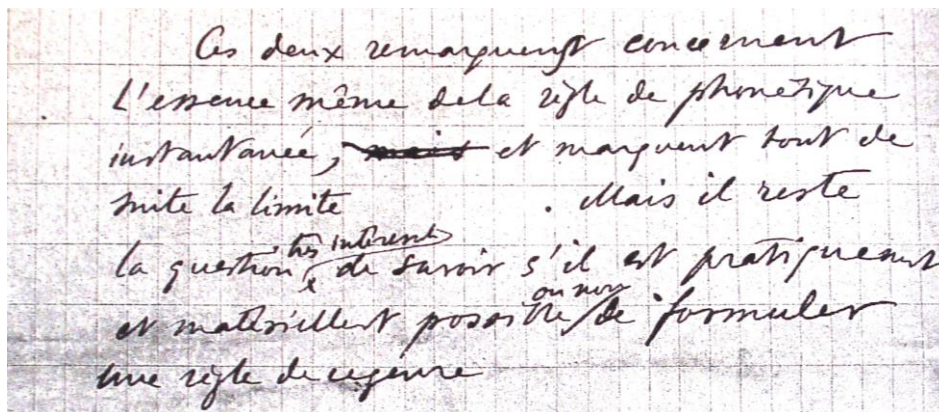 Ces deux remarquent concernent
L'essence même de la règle de phonétique
instantanée, mais et marquent tout de
suite la limite . Mais il reste
la question très intérent de savoir s'il est pratiquement
et matériellent possible ou non de formuler
une règle de ce genre